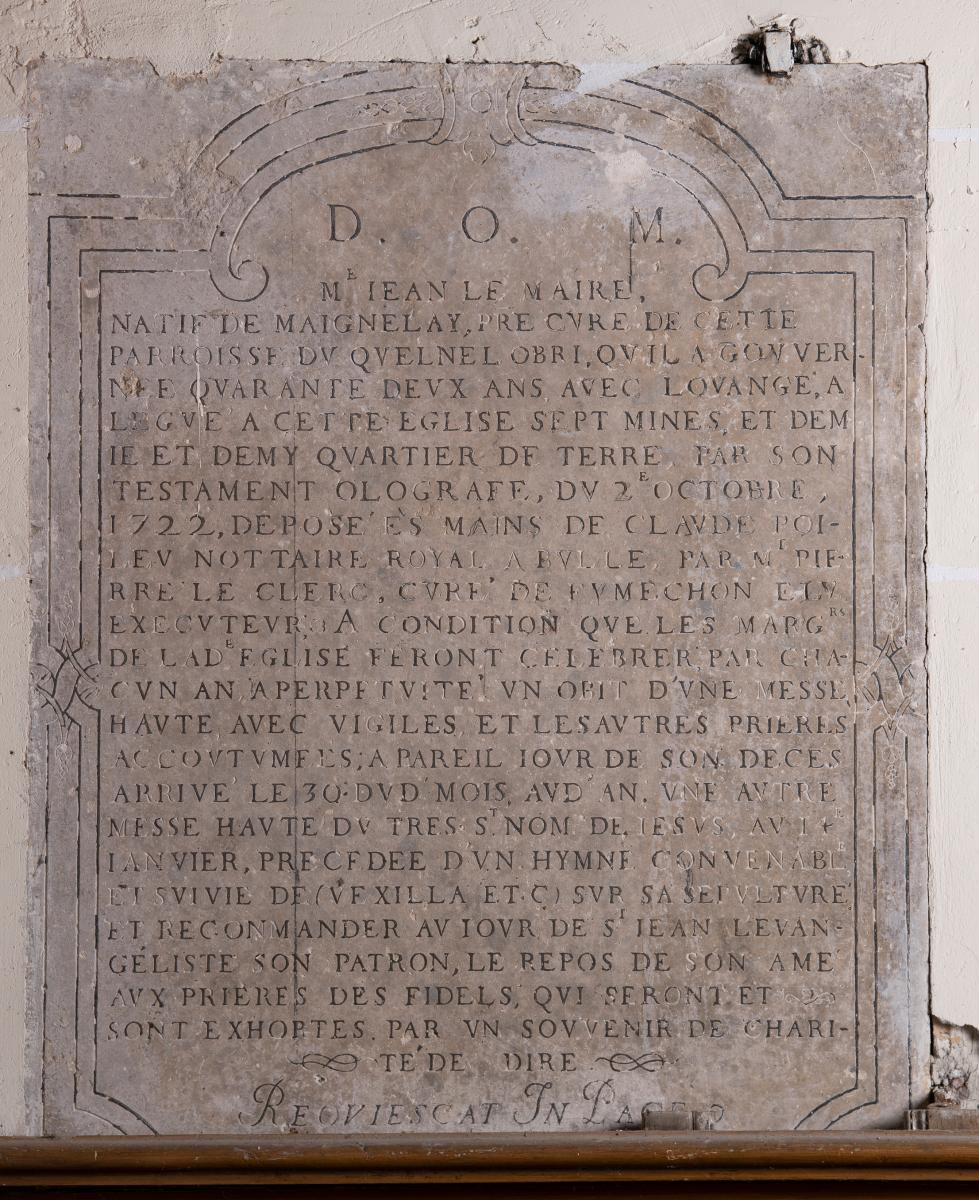 D. O. M.
M.E IEAN LE MAIRE,
NATIF DE MAIGNELAY, PRE CVRE DE CETTE
PARROISSE DV QVELNEL OBRI, QV IL A GOVVER-
NEE QVARANTE DEVX ANS AVEC LOVANGE, A
LEGVE' A CETTE EGLISE SEPT MINES, ET DEM
IE ET DEMY QVARTIER DE TERRE, PAR SON
TESTAMENT OLOGRAFE, DV 2E OCTOBRE,
1722, DEPOSE' ES MAINS DE CLAVDE POI-
LEV NOTTAIRE ROYAL A BVLLE, PAR Mr PIE-
RRE LE CLERC, CVRE' DE FVMECHON ELV
EXECVTEVR; A CONDITION QVE LES MARG RS
DE LAD E EGLISE FERONT CELEBRER PAR CHA-
CVN AN, A PERPETVITE' VN OBIT D'VNE MESSE
HAVTE AVEC VIGILES, ET LES AVTRES PRIERES
ACCOVTVMEES; A PAREIL IOVR DE SON DECES
ARRIVE' LE 30: DVD' MOIS, AVD' AN. VNE AVTRE
MESSE HAVTE DV TRES ST NOM DE IESVS, AV
IANVIER, PRECEDEE D'VN HYMNE CONVENABLE
ET SVIVIE DE (VEXILLA ET.C) SVR SA SEPVLTVRE
ET RECONMANDER AV IOVR DE ST IEAN LEVAN-
GÉLISTE SON PATRON, LE REPOS DE SON AME
AVX PRIERES DES FIDELS, QVI SERONT ET
SONT EXHORTES PAR VN SOVVENIR DE CHARI-
TE' DE DIRE
REQVIESCAT IN PACE